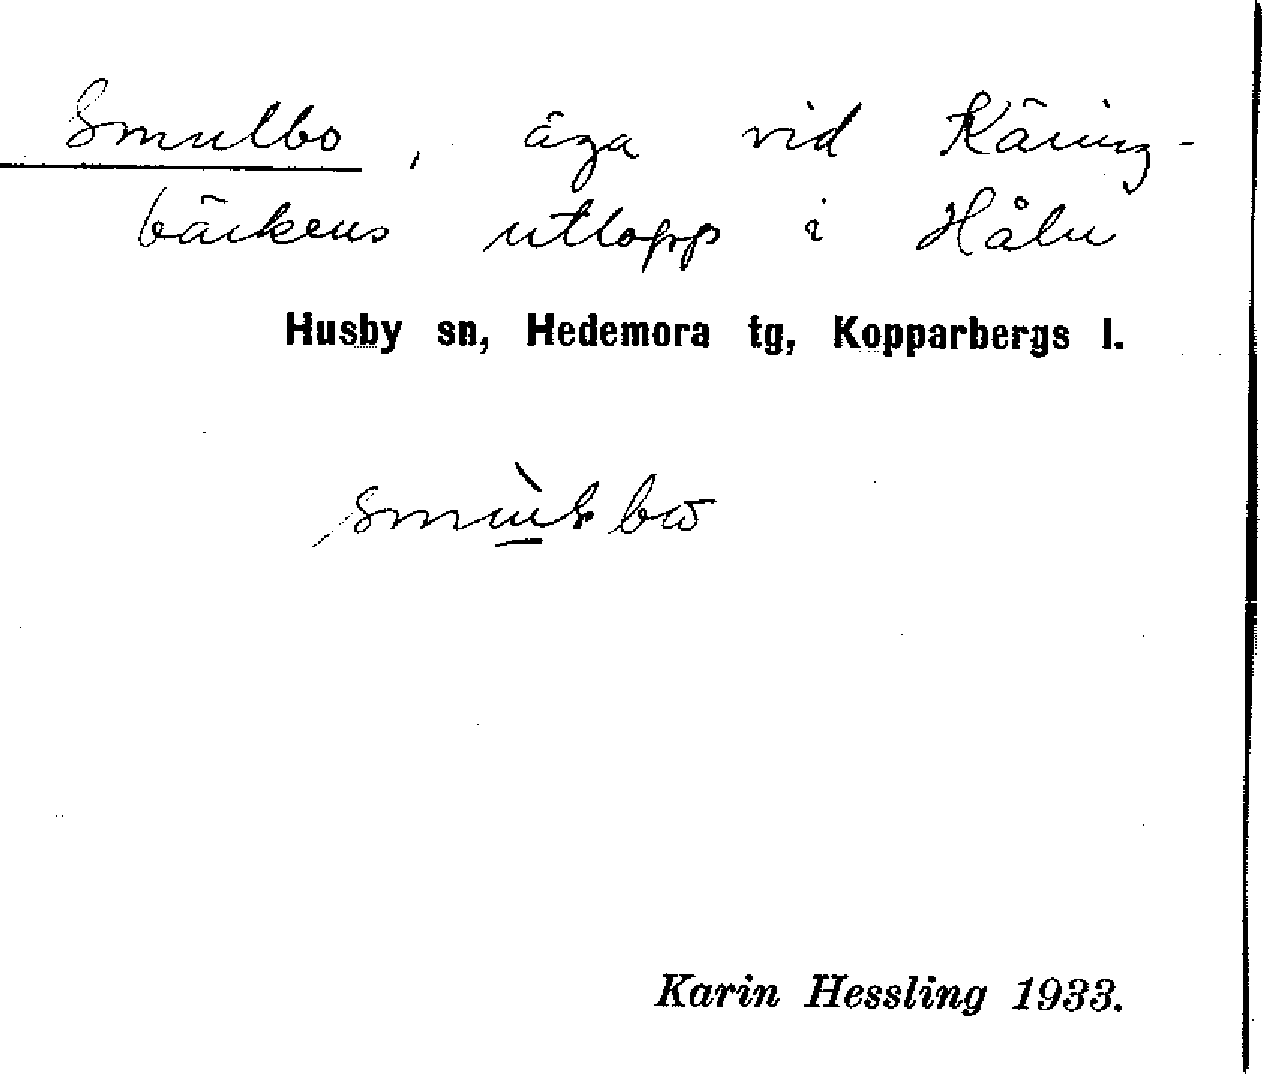 Smulbo, äga vid Käring-
bäckens utlopp i Håln
Husby sn, Hedemora tg, Kopparbergs l.
Karin Hessling 1933.